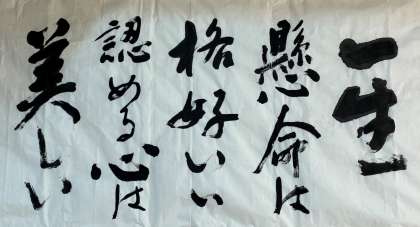 一生
懸命は
格好いい
認める心は
美しい